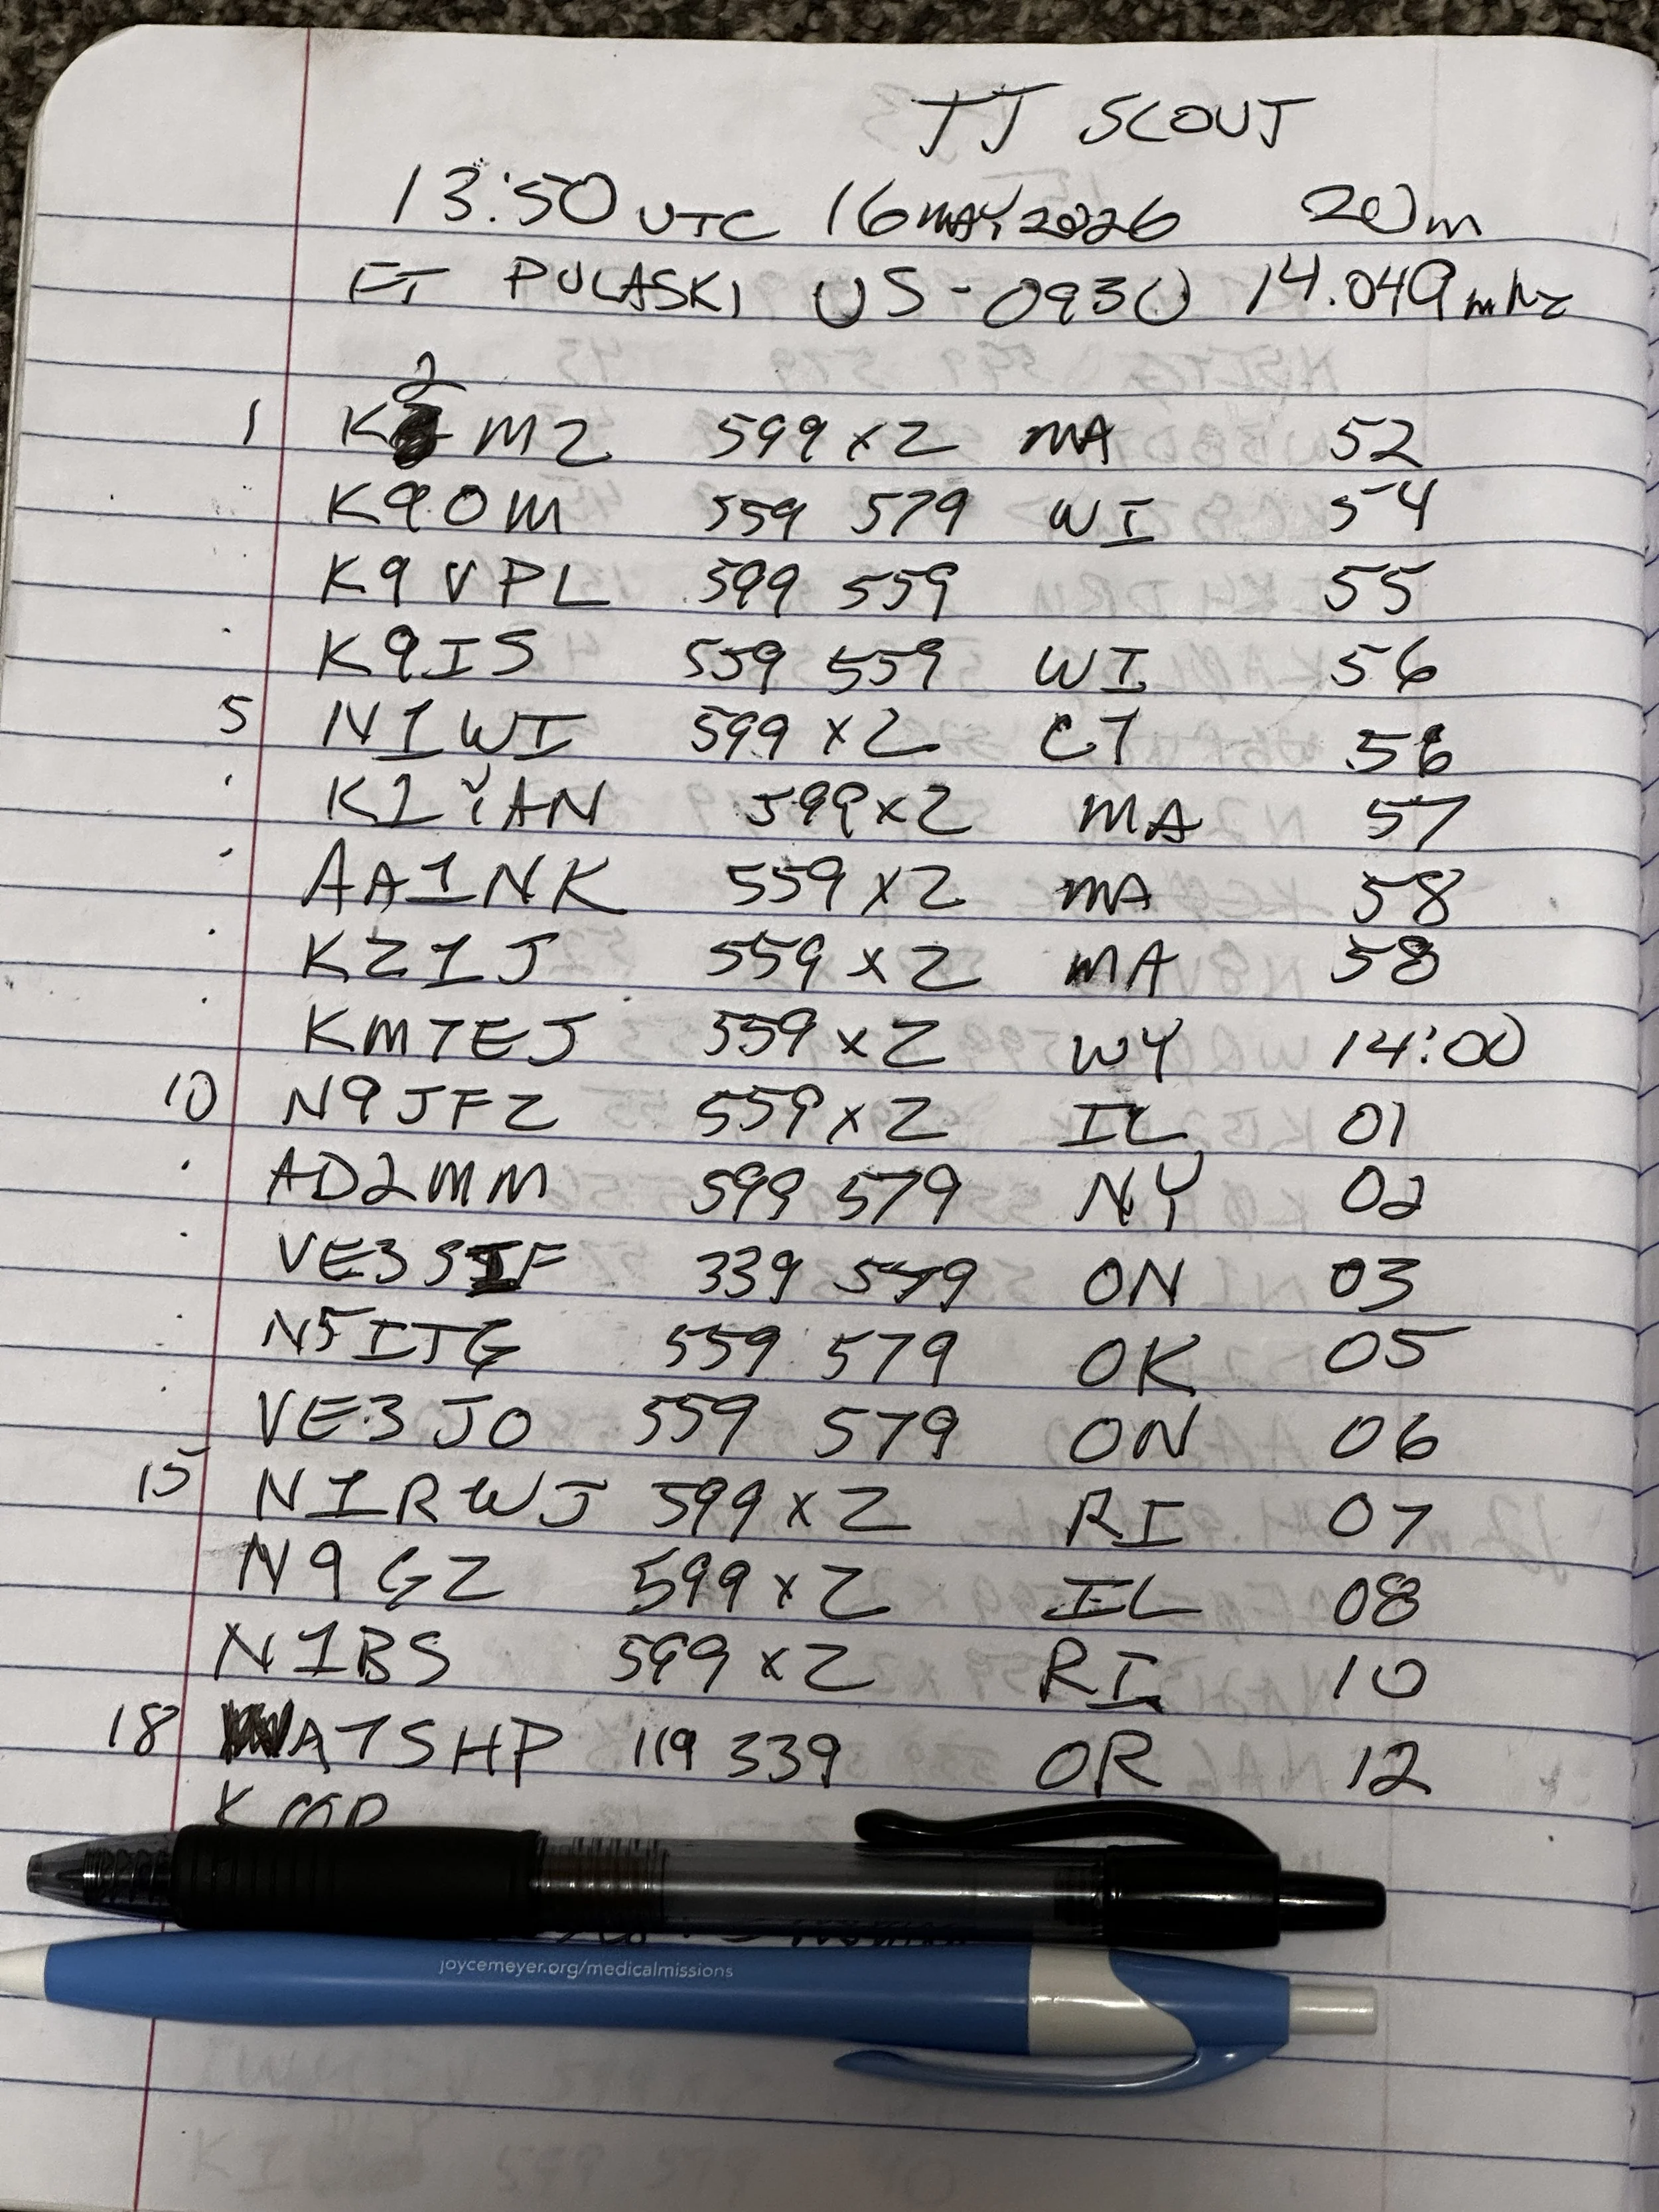 TT SCOUT
13:50 UTC 16 MAY 2026 20m
FT PULASKI US-0930 14.049 mhz
1 K2MZ 599 x2 MA 52
K9OM 559 579 WI 54
K9VPL 599 559 55
K9IS 559 559 WI 56
5 N1WI 599 x2 CT 56
K1YAN 599 x2 MA 57
AA1NK 559 x2 MA 58
KZ1J 559 x2 MA 58
KM7EJ 559 x2 WY 14:00
10 N9JFZ 559 x2 IL 01
AD2MM 599 579 NY 02
VE3SIF 339 549 ON 03
N5ITG 559 579 OK 05
VE3JO 559 579 ON 06
15 N1RWJ 599 x2 RI 07
N9GZ 599 x2 IL 08
N1BS 599 x2 RI 10
18 WA7SHP 119 339 OR 12
joycemeyer.org/medicalmissions